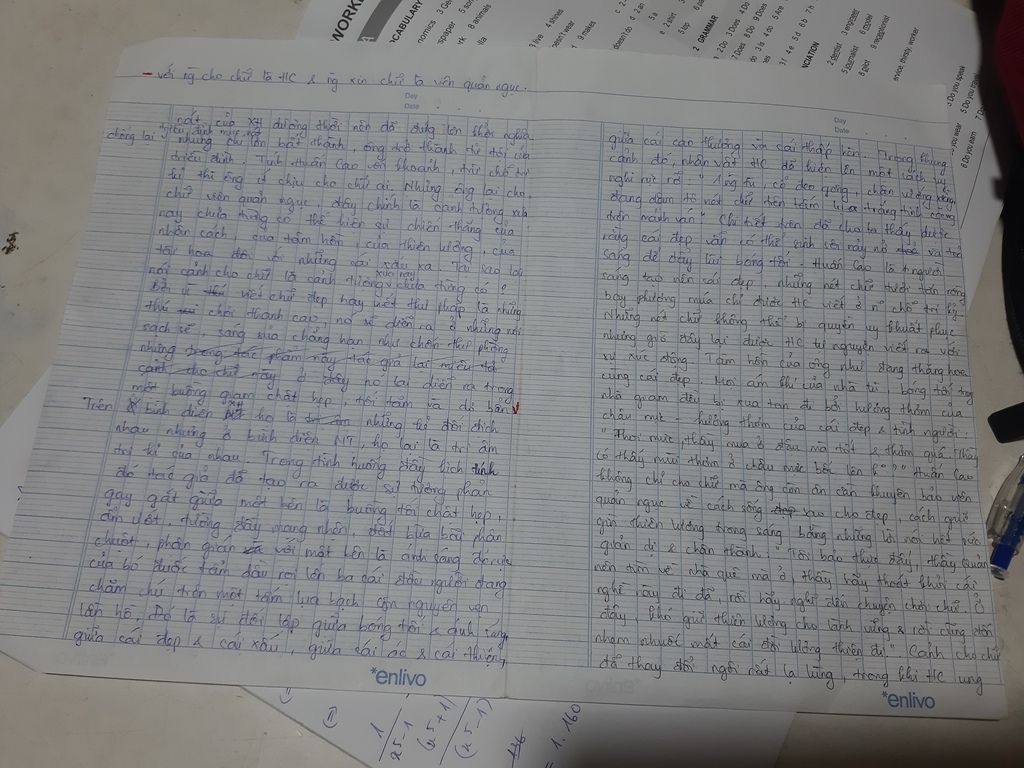 - với ng cho chữ là HC & ng xin chữ là viên quản ngục.
Day
Date
nát của XH đương thời nên đã đứng lên khởi nghĩa
chống lại triều đình mục nát
nhưng chí lớn bất thành, ông trở thành tử tội của
triều đình. Tính Huấn Cao vốn khoảnh, trừ chỗ tri
kỉ thì ông ít chịu cho chữ ai. Nhưng ông lại cho
chữ viên quản ngục, đây chính là cảnh tượng xưa
nay chưa từng có thể hiện sự chiến thắng của
nhân cách, của tâm hồn, của thiên lương, của
tài hoa đối với những cái xấu xa. Tại sao lại
nói cảnh cho chữ là cảnh tượng xưa nay chưa từng có?
Bởi vì viết chữ đẹp hay viết thư pháp là những
thú chơi thanh cao, nó sẽ diễn ra ở những nơi
sạch sẽ, sáng sủa chẳng hạn như chốn thư phòng
nhưng trong tác phẩm này tác giả lại miêu tả
cảnh cho chữ này ở đây nó lại diễn ra trong
một buồng giam chật hẹp, tối tăm và dơ bẩn
Trên bình diện XH họ là những kẻ đối địch
nhau nhưng ở bình diện NT họ lại là tri âm
tri kỉ của nhau. Trong tình huống đầy kịch tính
đó tác giả đã tạo ra được sự tương phản
gay gắt giữa một bên là buồng tối chật hẹp,
ẩm ướt, tường đầy mạng nhện, đất bừa bãi phân
chuột, phân gián với một bên là ánh sáng đỏ rực
của bó đuốc tẩm dầu rọi lên ba cái đầu người đang
chăm chú trên một tấm lụa bạch còn nguyên vẹn
lần hồ. Đó là sự đối lập giữa bóng tối & ánh sáng,
giữa cái đẹp & cái xấu, giữa cái ác & cái thiện,
*enlivo
Day
Date
giữa cái cao thượng với cái thấp hèn. Trong khung
cảnh đó, nhân vật HC đã hiện lên một cách uy
nghi rực rỡ "1 ng tù, cổ đeo gông, chân vướng xiềng,
đang dậm tô nét chữ trên tấm lụa trắng tinh căng
trên mảnh ván" Chi tiết trên đã cho ta thấy được
rằng cái đẹp vẫn có thể sinh sôi nảy nở và toả
sáng dù đầy bóng tối. Huấn Cao là 1 người
sáng tạo nên cái đẹp, những nét chữ tươi tắn rồng
bay phượng múa chỉ được HC viết ở n chỗ tri kỷ.
Những nét chữ không thể bị quyền uy khuất phục
nhưng giờ đây lại được HC tự nguyện viết ra với
sự xúc động. Tâm hồn của ông như đang thăng hoa
cùng cái đẹp. Mọi ám khí của nhà tù, bóng tối trong
nhà giam đều bị xua tan đi bởi hương thơm của
chậu mực - hương thơm của cái đẹp & tình người.
"Thoi mực, thầy mua ở đâu mà tốt & thơm quá. Thầy
có thấy mùi thơm ở chậu mực bốc lên k?" Huấn Cao
không chỉ cho chữ mà ông còn ân cần khuyên bảo viên
quản ngục về cách sống sao cho đẹp, cách giữ
gìn thiên lương trong sáng bằng những lời nói hết sức
giản dị & chân thành "Tôi bảo thực đấy, thầy Quản
nên tìm về nhà quê mà ở, thầy hãy thoát khỏi cái
nghề này đi đã, rồi hãy nghĩ đến chuyện chơi chữ. Ở
đây, khó giữ thiên lương cho lành vững & rồi cũng đến
nhem nhuốc mất cái đời lương thiện đi" Cảnh cho chữ
đã thay đổi ngôi rất lạ lùng, trong khi HC ung
*enlivo
WORK
VOCABULARY
2 GRAMMAR
5 journalist
1. 160